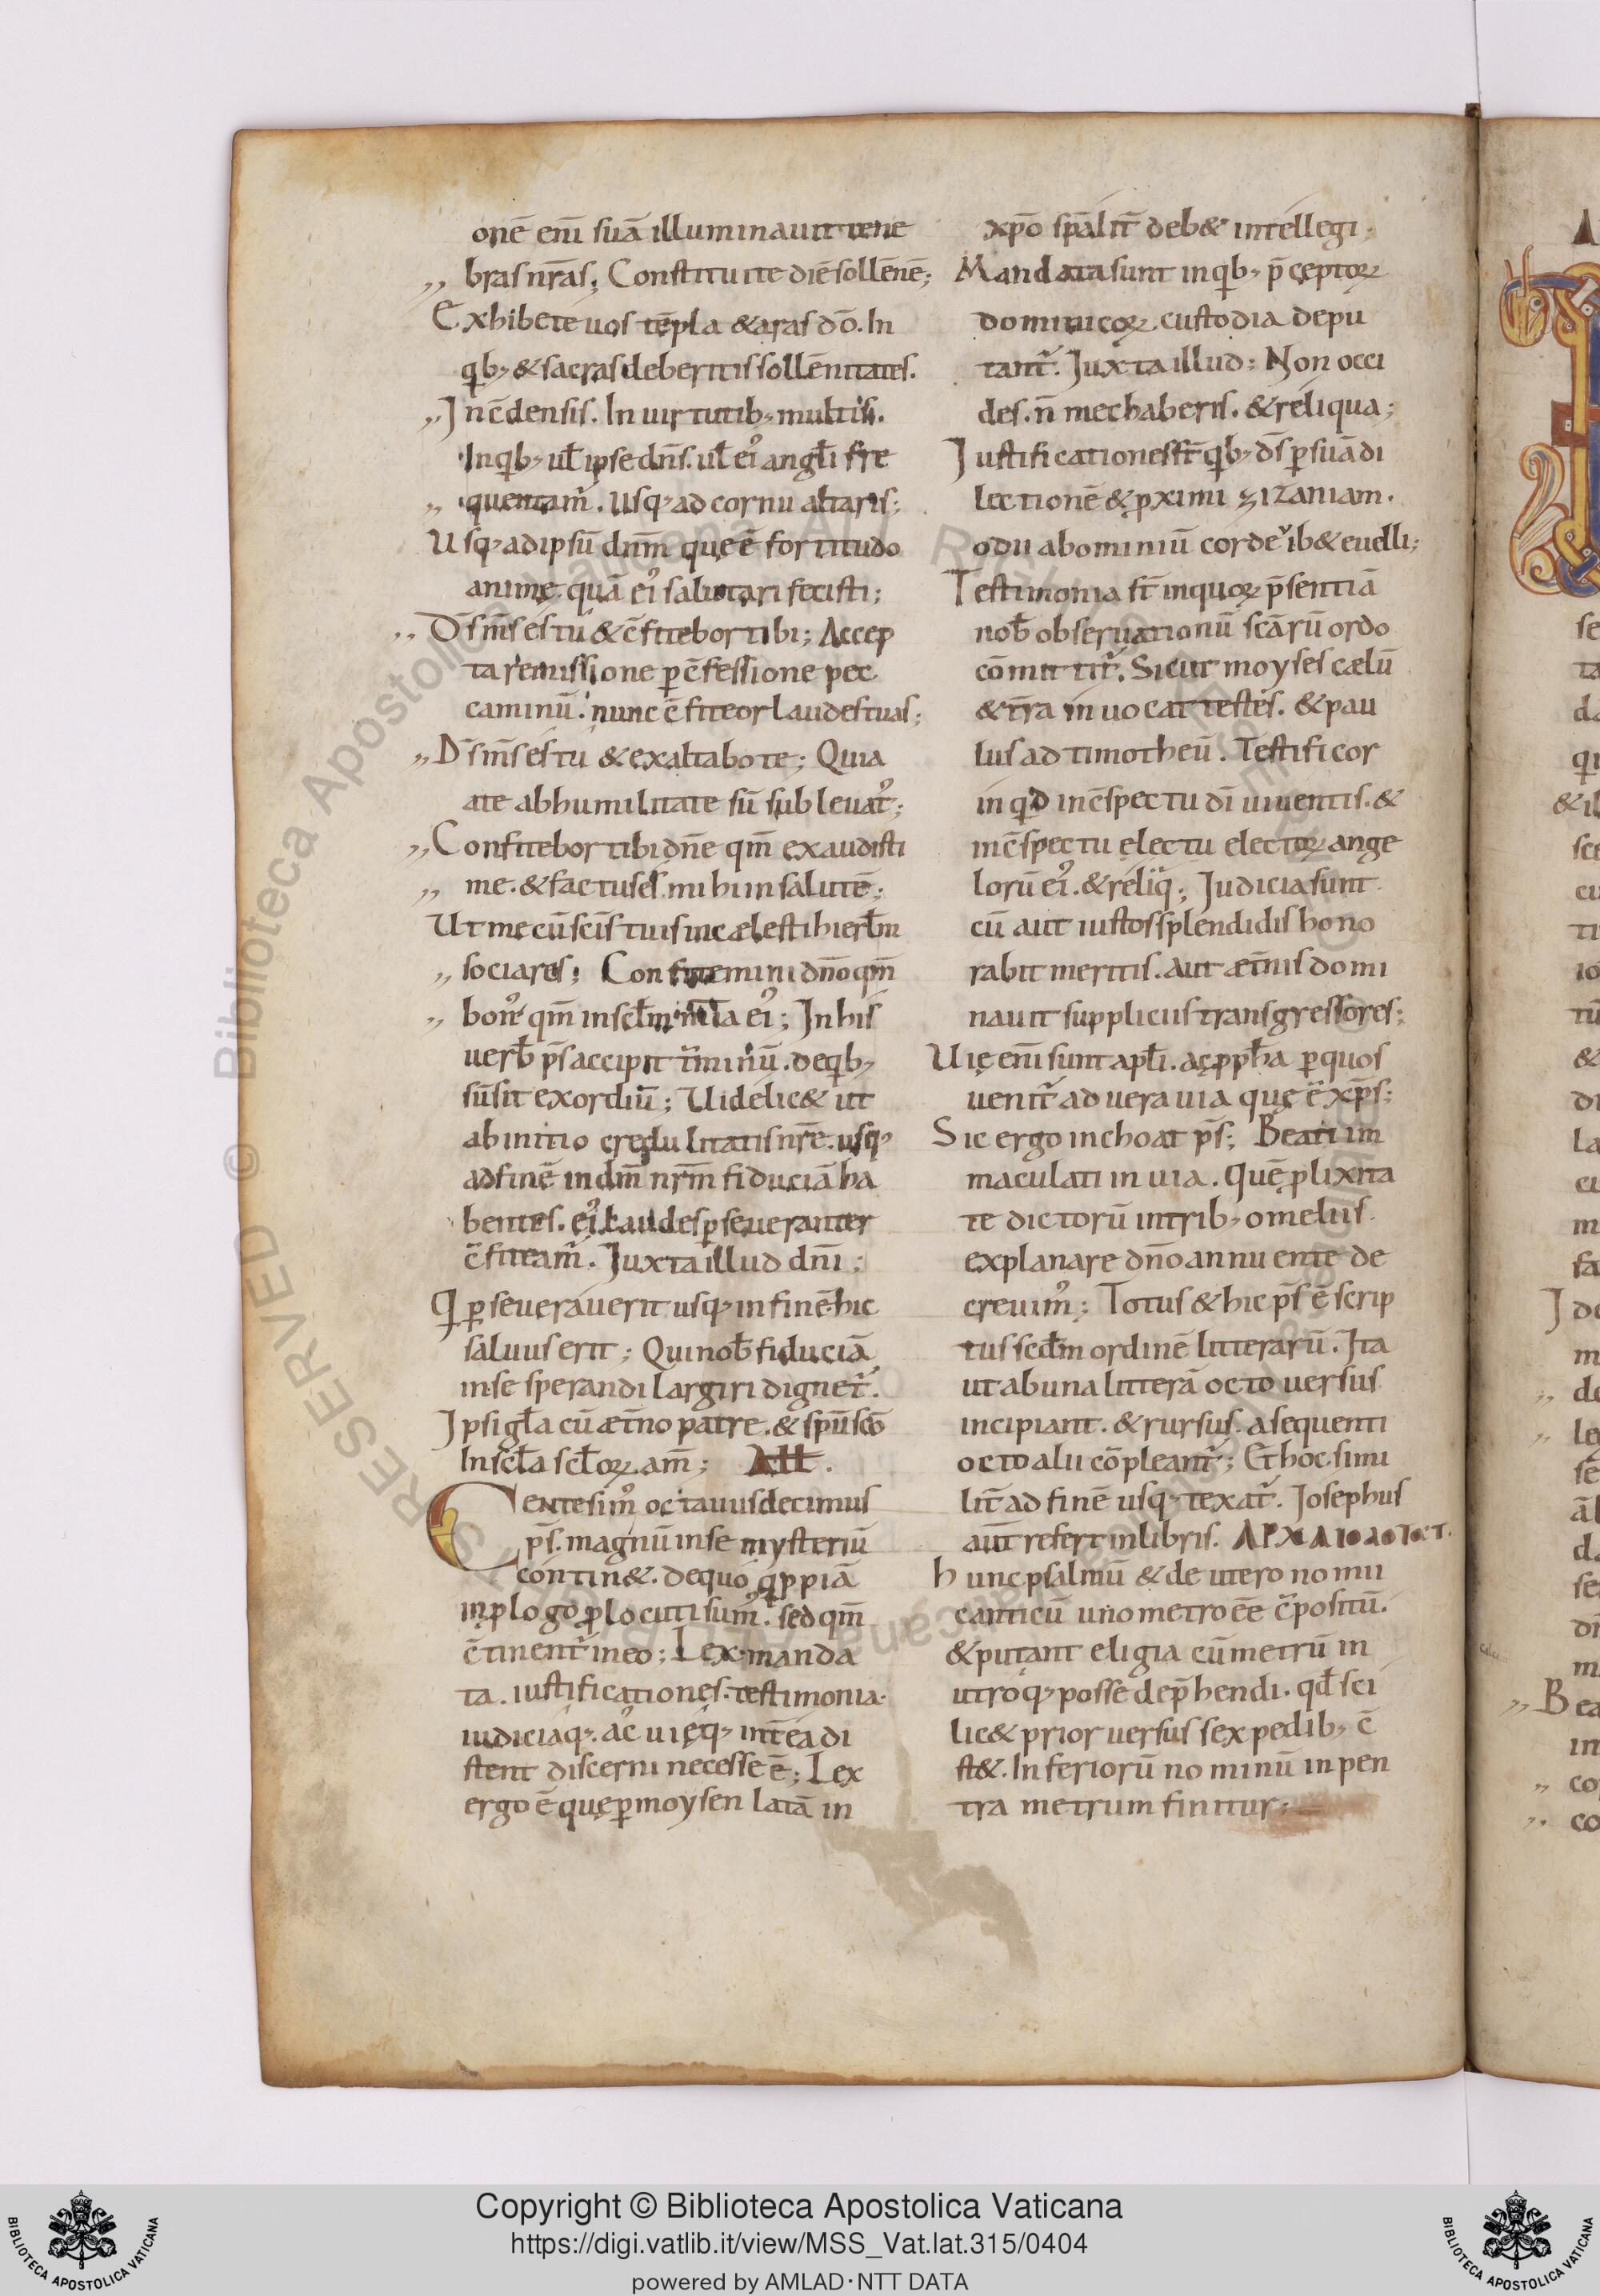 onē eni̅ suā illuminauit tene
„ bras nr̅as; Constituite diē sollēnē;
Exhibete uos tēpla & aras dō. In
qb; & sacras deberitis sollēnitates.
„ In c̅densis. In uirtutib; multis.
In qib; ul̅ ipse dn̅s. ul̅ ei' angl̅i fre
„ quentam̅. Usq; ad cornu altaris;
Usq; ad ipsū dnm̅ quę ē fortitudo
animę quā ei' salutari fecisti;
„ D̅s m̅s es tu & c̅fitebor tibi; Accep
ta remissione p c̅fessione pec
caminū. nunc c̅fiteor laudes tuas;
„ D̅s m̅s es tu & exaltabo te; Quia
a te ab humilitate sū subleuat';
„ Confitebor tibi dn̅e qm̅ exaudisti
„ me. & factus es mihi in salutē;
Ut me cū sc̅is tuis in cælesti hierl̅m
„ sociares; Confitemini dn̅o qm̅
„ bon' qm̅ in sclm̅ mi̅a ei'; In his
uerb̅ ps̅ accipit t̅minū. de qib;
sūsit exordiū; Uidelic& ut
ab initio credulitatis nr̅e. usq;
ad finē in dm̅ nrm̅ fiduciā ha
bentes. ei' laudes pseueranter
c̅fiteam̅. Juxta illud dn̅i;
Q pseuerauerit usq; in finē hic
saluus erit; Qui nob̅ fiduciā
in se sperandi largiri dignet̅.
Ipsi gl̅a cū æt̅no patre. & spū scō
In scl̅a scl̅oꝝ am̅; All.
Centesim' octauus decimus
ps̅. magnū in se mysteriū
contin&. de quo q̅ppiā
in plogo plocuti sum'. sed qm̅
c̅tinent̅ in eo; Lex manda
ta. iustificationes. testimonia.
iudiciaq;. ac̅ uięq; int̅ea di
stent discerni necesse ē; Lex
ergo ē quę p moysen latā in
xpo̅ spa̅lit̅ deb& intellegi;
Mandata sunt in qib; p̅ceptoꝝ
dominicoꝝ custodia depu
tant̅. Juxta illud: Non occi
des. n̅ mechaberis. & reliqua;
Iustificationes st̅ qib; d̅s p suā di
lectionē & pximi zizaniam.
odii abominiū corde ib& euelli;
Testimonia st̅ in quoꝝ p̅sentiā
nob̅ obseruationū scārū ordo
cōmittit̅. Sicut moyses cælū
& t̅ra in uocat testes. & pau
lus ad timotheū. Testificor
inqd in c̅spectu di̅ uiuentis. &
in c̅spectu electu electoꝝ ange
lorū ei'. & reliq; Judicia sunt
cū aut iustos splendidis hono
rabit meritis. aut æt̅nis domi
nauit suppliciis transgressores;
Uię eni̅ sunt apl̅i. ac pph̅a p quos
uenit̅ ad uera uia quę ē xps̅;
Sic ergo inchoat ps̅; Beati im
maculati in uia. Quē plixita
te dictorū in trib; omeliis
explanare dn̅o annuente de
creuim'; Totus & hic ps̅ ē scrip
tus scdm̅ ordinē litterarū. Ita
ut ab una litterā octo uersus
incipiant. & rursus. a sequenti
octo alii cōpleant̅; Et hoc simi
lit̅ ad finē usq; texat̅. Josephus
aut̅ refert in libris.
hunc psalmū & deuteronomii
canticū uno metro ēe c̅positū.
& putant eligia cū metrū in
utroq; posse dep̅hendi. qd̅ sci
lic& prior uersus sex pedib; c̅
st&. Inferiorū no minū in pen
tra metrum finitur;
Copyright © Biblioteca Apostolica Vaticana
https://digi.vatlib.it/view/MSS_Vat.lat.315/0404
powered by AMLAD·NTT DATA
BIBLIOTECA APOSTOLICA VATICANA
BIBLIOTECA APOSTOLICA VATICANA